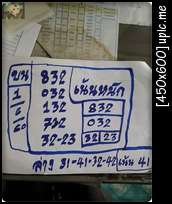 บน 832 เน้นหนัก
1 032 832
6 132 032
60 732 32 23
32-23
ล่าง 31-41-32-42 เน้น 41
[450x600] upic.me